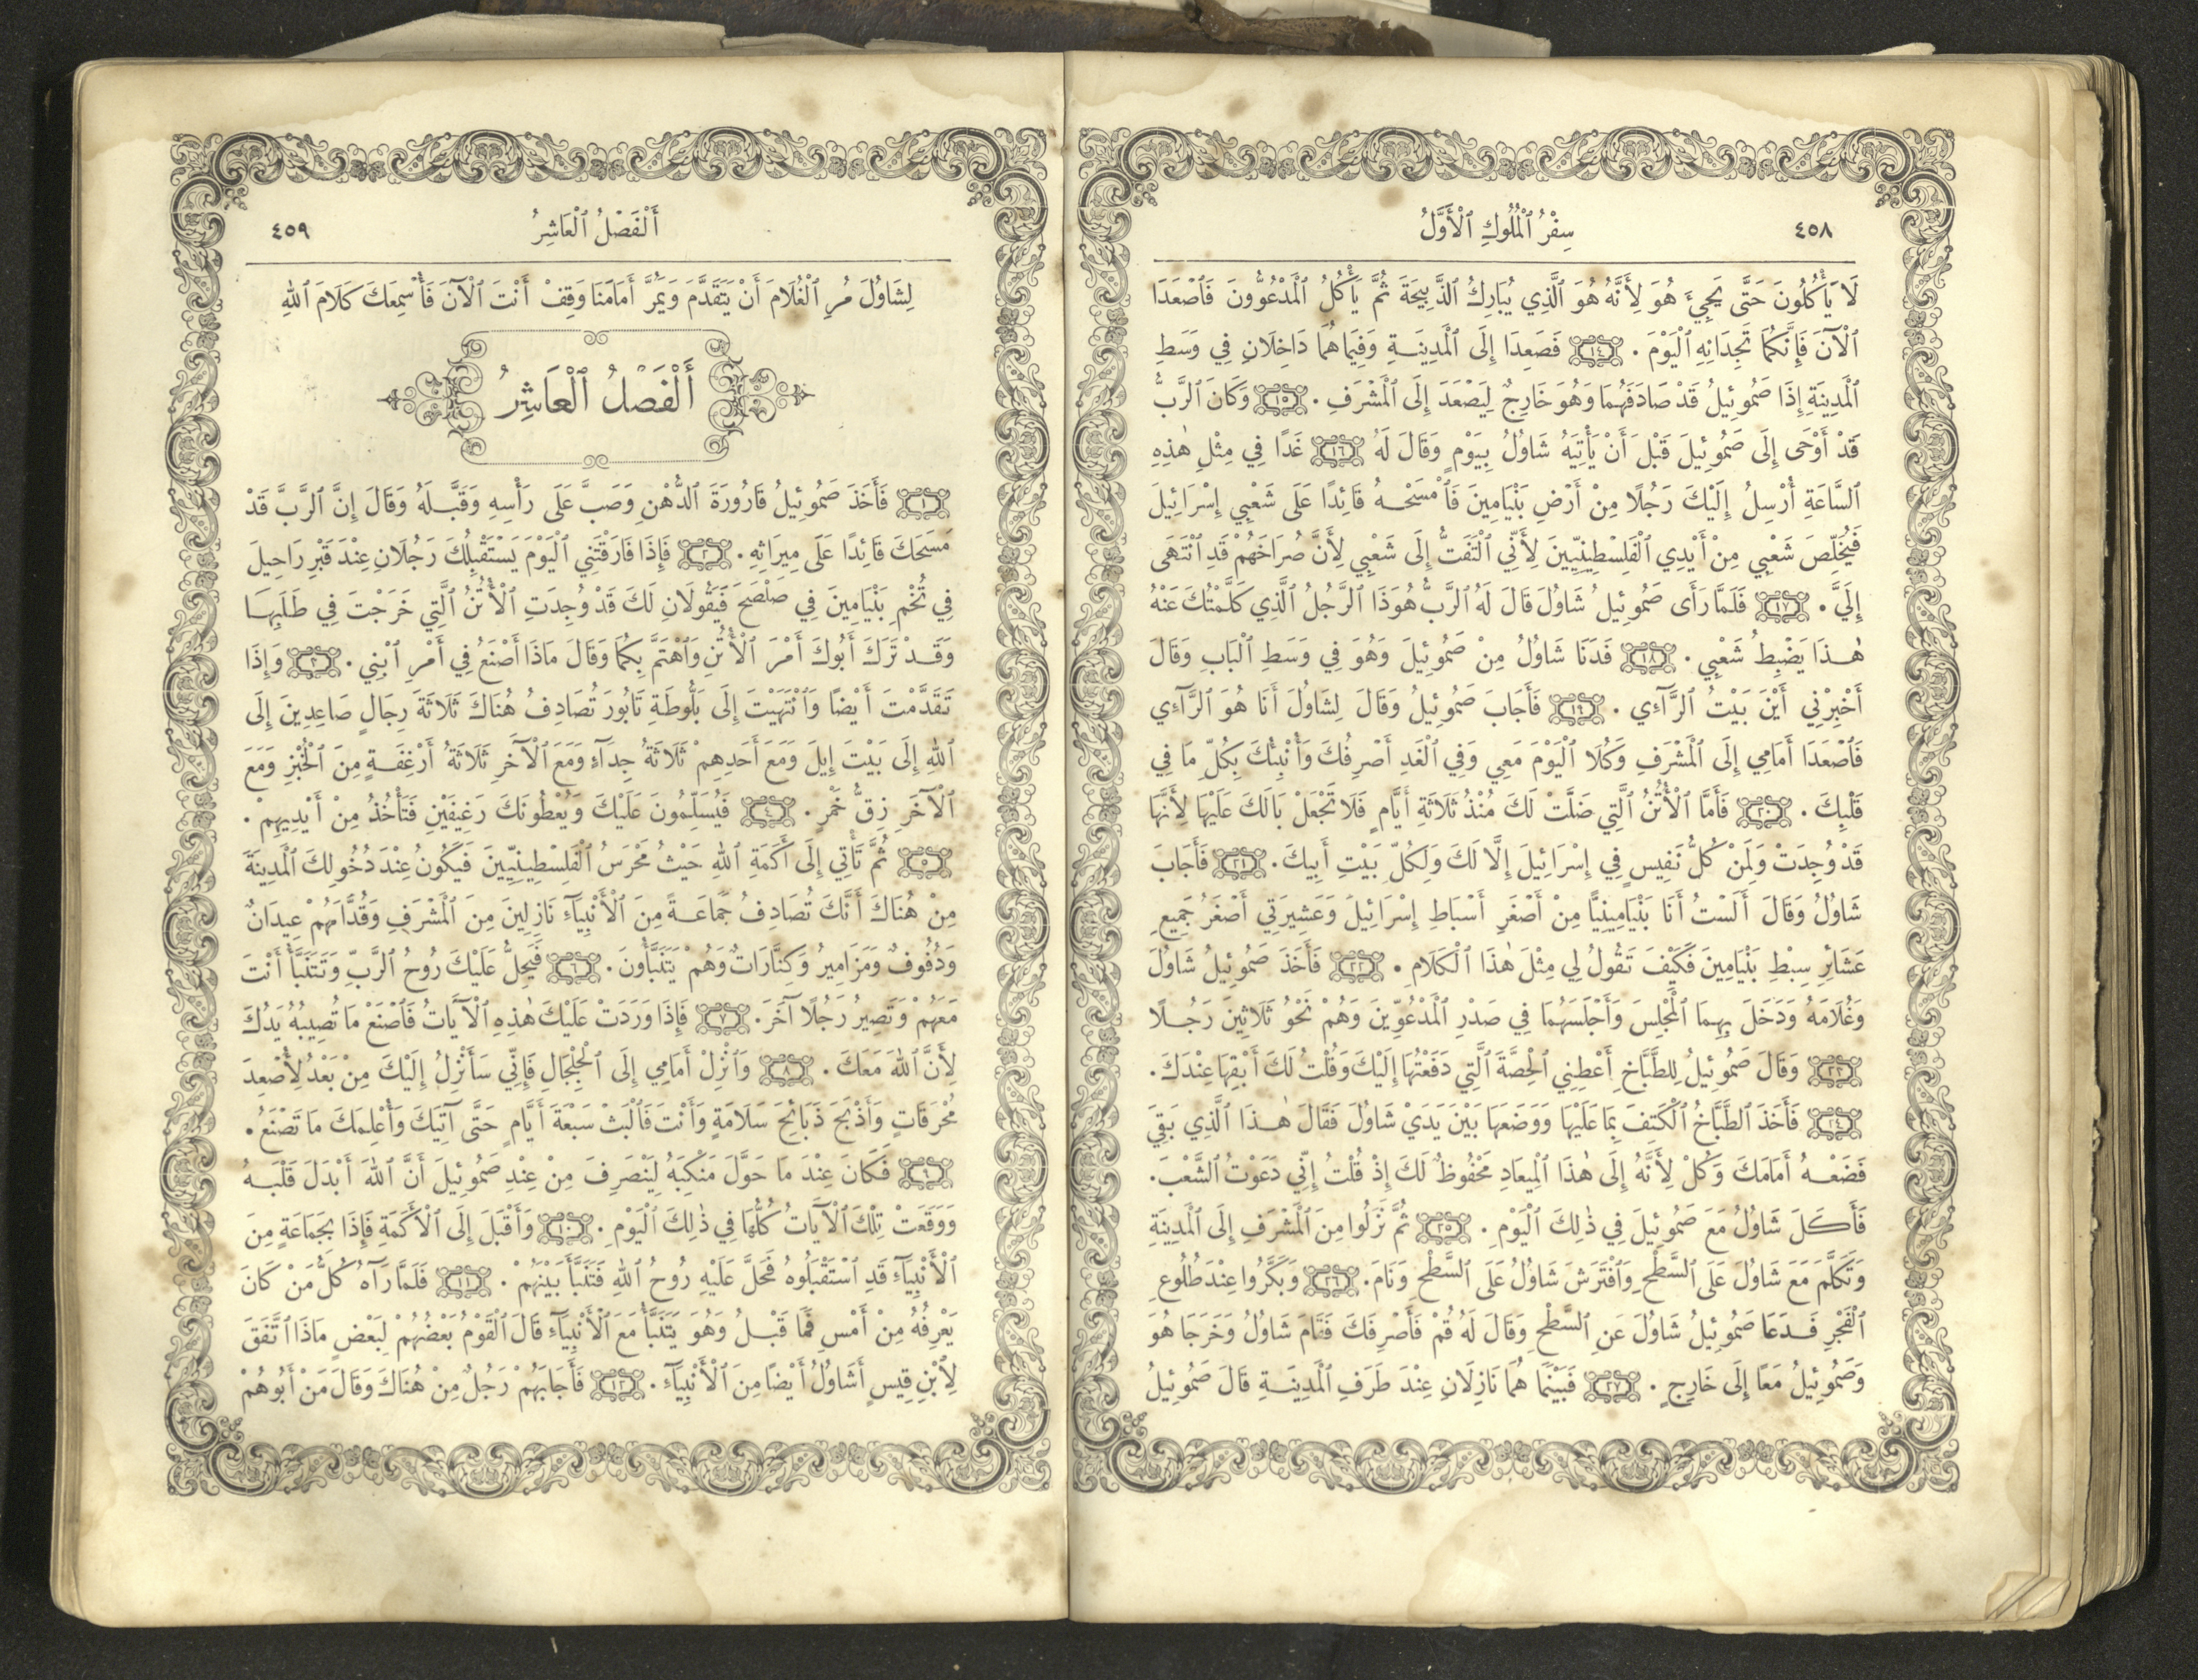 ٤٥٨
سِفْرُ ٱلْمُلُوكِ ٱلْأَوَّلُ
لَا يَأْكُلُونَ حَتَّى يَجِيءَ هُوَ لِأَنَّهُ هُوَ ٱلَّذِي يُبَارِكُ ٱلذَّبِيحَةَ ثُمَّ يَأْكُلُ ٱلْمَدْعُوُّونَ فَٱصْعَدَا
ٱلْآنَ فَإِنَّكُمَا تَجِدَانِهِ ٱلْيَوْمَ . ١٤ فَصَعِدَا إِلَى ٱلْمَدِينَةِ وَفِيمَا هُمَا دَاخِلَانِ فِي وَسَطِ
ٱلْمَدِينَةِ إِذَا صَمُوئِيلُ قَدْ صَادَفَهُمَا وَهُوَ خَارِجٌ لِيَصْعَدَ إِلَى ٱلْمَشْرَفِ . ١٥ وَكَانَ ٱلرَّبُّ
قَدْ أَوْحَى إِلَى صَمُوئِيلَ قَبْلَ أَنْ يَأْتِيَهُ شَاوُلُ بِيَوْمٍ وَقَالَ لَهُ ١٦ غَدًا فِي مِثْلِ هٰذِهِ
ٱلسَّاعَةِ أُرْسِلُ إِلَيْكَ رَجُلًا مِنْ أَرْضِ بَنْيَامِينَ فَٱمْسَحْهُ قَائِدًا عَلَى شَعْبِي إِسْرَائِيلَ
فَيُخَلِّصَ شَعْبِي مِنْ أَيْدِي ٱلْفَلِسْطِينِيِّينَ لِأَنِّي ٱلْتَفَتُّ إِلَى شَعْبِي لِأَنَّ صُرَاخَهُمْ قَدِ ٱنْتَهَى
إِلَيَّ . ١٧ فَلَمَّا رَأَى صَمُوئِيلُ شَاوُلَ قَالَ لَهُ ٱلرَّبُّ هُوَذَا ٱلرَّجُلُ ٱلَّذِي كَلَّمْتُكَ عَنْهُ
هٰذَا يَضْبِطُ شَعْبِي . ١٨ فَدَنَا شَاوُلُ مِنْ صَمُوئِيلَ وَهُوَ فِي وَسَطِ ٱلْبَابِ وَقَالَ
أَخْبِرْنِي أَيْنَ بَيْتُ ٱلرَّآئِي . ١٩ فَأَجَابَ صَمُوئِيلُ وَقَالَ لِشَاوُلَ أَنَا هُوَ ٱلرَّآئِي
فَٱصْعَدَا أَمَامِي إِلَى ٱلْمَشْرَفِ وَكُلَا ٱلْيَوْمَ مَعِي وَفِي ٱلْغَدِ أَصْرِفُكَ وَأُنْبِئُكَ بِكُلِّ مَا فِي
قَلْبِكَ . ٢٠ فَأَمَّا ٱلْأُتُنُ ٱلَّتِي ضَلَّتْ لَكَ مُنْذُ ثَلَاثَةِ أَيَّامٍ فَلَا تَجْعَلْ بَالَكَ عَلَيْهَا لِأَنَّهَا
قَدْ وُجِدَتْ وَلِمَنْ كُلُّ نَفِيسٍ فِي إِسْرَائِيلَ إِلَّا لَكَ وَلِكُلِّ بَيْتِ أَبِيكَ . ٢١ فَأَجَابَ
شَاوُلُ وَقَالَ أَلَسْتُ أَنَا بَنْيَامِينِيًّا مِنْ أَصْغَرِ أَسْبَاطِ إِسْرَائِيلَ وَعَشِيرَتِي أَصْغَرُ جَمِيعِ
عَشَائِرِ سِبْطِ بَنْيَامِينَ فَكَيْفَ تَقُولُ لِي مِثْلَ هٰذَا ٱلْكَلَامِ . ٢٢ فَأَخَذَ صَمُوئِيلُ شَاوُلَ
وَغُلَامَهُ وَدَخَلَ بِهِمَا ٱلْمَجْلِسَ وَأَجْلَسَهُمَا فِي صَدْرِ ٱلْمَدْعُوِّينَ وَهُمْ نَحْوُ ثَلَاثِينَ رَجُلًا
٢٣ وَقَالَ صَمُوئِيلُ لِلطَّبَّاخِ أَعْطِنِي ٱلْحِصَّةَ ٱلَّتِي دَفَعْتُهَا إِلَيْكَ وَقُلْتُ لَكَ أَبْقِهَا عِنْدَكَ .
٢٤ فَأَخَذَ ٱلطَّبَّاخُ ٱلْكَتِفَ بِمَا عَلَيْهَا وَوَضَعَهَا بَيْنَ يَدَيْ شَاوُلَ فَقَالَ هٰذَا ٱلَّذِي بَقِيَ
فَضَعْهُ أَمَامَكَ وَكُلْ لِأَنَّهُ إِلَى هٰذَا ٱلْمِيعَادِ مَحْفُوظٌ لَكَ إِذْ قُلْتُ إِنِّي دَعَوْتُ ٱلشَّعْبَ .
فَأَكَلَ شَاوُلُ مَعَ صَمُوئِيلَ فِي ذٰلِكَ ٱلْيَوْمِ . ٢٥ ثُمَّ نَزَلُوا مِنَ ٱلْمَشْرَفِ إِلَى ٱلْمَدِينَةِ
وَتَكَلَّمَ مَعَ شَاوُلَ عَلَى ٱلسَّطْحِ وَٱفْتَرَشَ شَاوُلُ عَلَى ٱلسَّطْحِ وَنَامَ . ٢٦ وَبَكَّرُوا عِنْدَ طُلُوعِ
ٱلْفَجْرِ فَدَعَا صَمُوئِيلُ شَاوُلَ عَنِ ٱلسَّطْحِ وَقَالَ لَهُ قُمْ فَأَصْرِفَكَ فَقَامَ شَاوُلُ وَخَرَجَا هُوَ
وَصَمُوئِيلُ مَعًا إِلَى خَارِجٍ . ٢٧ فَبَيْنَمَا هُمَا نَازِلَانِ عِنْدَ طَرَفِ ٱلْمَدِينَةِ قَالَ صَمُوئِيلُ
أَلْفَصْلُ ٱلْعَاشِرُ
٤٥٩
لِشَاوُلَ مُرِ ٱلْغُلَامَ أَنْ يَتَقَدَّمَ وَيَمُرَّ أَمَامَنَا وَقِفْ أَنْتَ ٱلْآنَ فَأُسْمِعَكَ كَلَامَ ٱللهِ
أَلْفَصْلُ ٱلْعَاشِرُ
١ فَأَخَذَ صَمُوئِيلُ قَارُورَةَ ٱلدُّهْنِ وَصَبَّ عَلَى رَأْسِهِ وَقَبَّلَهُ وَقَالَ إِنَّ ٱلرَّبَّ قَدْ
مَسَحَكَ قَائِدًا عَلَى مِيرَاثِهِ . ٢ فَإِذَا فَارَقْتَنِي ٱلْيَوْمَ يَسْتَقْبِلُكَ رَجُلَانِ عِنْدَ قَبْرِ رَاحِيلَ
فِي تُخْمِ بَنْيَامِينَ فِي صَلْصَحَ فَيَقُولَانِ لَكَ قَدْ وُجِدَتِ ٱلْأُتُنُ ٱلَّتِي خَرَجْتَ فِي طَلَبِهَا
وَقَدْ تَرَكَ أَبُوكَ أَمْرَ ٱلْأُتُنِ وَٱهْتَمَّ بِكُمَا وَقَالَ مَاذَا أَصْنَعُ فِي أَمْرِ ٱبْنِي . ٣ وَإِذَا
تَقَدَّمْتَ أَيْضًا وَٱنْتَهَيْتَ إِلَى بَلُّوطَةِ تَابُورَ تُصَادِفُ هُنَاكَ ثَلَاثَةَ رِجَالٍ صَاعِدِينَ إِلَى
ٱللهِ إِلَى بَيْتَ إِيلَ وَمَعَ أَحَدِهِمْ ثَلَاثَةُ جِدَآءٍ وَمَعَ ٱلْآخَرِ ثَلَاثَةُ أَرْغِفَةٍ مِنَ ٱلْخُبْزِ وَمَعَ
ٱلْآخَرِ زِقُّ خَمْرٍ . ٤ فَيُسَلِّمُونَ عَلَيْكَ وَيُعْطُونَكَ رَغِيفَيْنِ فَتَأْخُذُ مِنْ أَيْدِيهِمْ .
٥ ثُمَّ تَأْتِي إِلَى أَكَمَةِ ٱللهِ حَيْثُ مَحْرَسُ ٱلْفَلِسْطِينِيِّينَ فَيَكُونُ عِنْدَ دُخُولِكَ ٱلْمَدِينَةَ
مِنْ هُنَاكَ أَنَّكَ تُصَادِفُ جَمَاعَةً مِنَ ٱلْأَنْبِيَآءِ نَازِلِينَ مِنَ ٱلْمَشْرَفِ وَقُدَّامَهُمْ عِيدَانٌ
وَدُفُوفٌ وَمَزَامِيرُ وَكِنَّارَاتٌ وَهُمْ يَتَنَبَّأُونَ . ٦ فَيَحِلُّ عَلَيْكَ رُوحُ ٱلرَّبِّ وَتَتَنَبَّأُ أَنْتَ
مَعَهُمْ وَتَصِيرُ رَجُلًا آخَرَ . ٧ فَإِذَا وَرَدَتْ عَلَيْكَ هٰذِهِ ٱلْآيَاتُ فَٱصْنَعْ مَا تُصِيبُهُ يَدُكَ
لِأَنَّ ٱللهَ مَعَكَ . ٨ وَٱنْزِلْ أَمَامِي إِلَى ٱلْجِلْجَالِ فَإِنِّي سَأَنْزِلُ إِلَيْكَ مِنْ بَعْدُ لِأُصْعِدَ
مُحْرَقَاتٍ وَأَذْبَحَ ذَبَائِحَ سَلَامَةٍ وَأَنْتَ فَٱلْبَثْ سَبْعَةَ أَيَّامٍ حَتَّى آتِيَكَ وَأُعْلِمَكَ مَا تَصْنَعُ .
٩ فَكَانَ عِنْدَ مَا حَوَّلَ مَنْكِبَهُ لِيَنْصَرِفَ مِنْ عِنْدِ صَمُوئِيلَ أَنَّ ٱللهَ أَبْدَلَ قَلْبَهُ
وَوَقَعَتْ تِلْكَ ٱلْآيَاتُ كُلُّهَا فِي ذٰلِكَ ٱلْيَوْمِ . ١٠ وَأَقْبَلَ إِلَى ٱلْأَكَمَةِ فَإِذَا بِجَمَاعَةٍ مِنَ
ٱلْأَنْبِيَآءِ قَدِ ٱسْتَقْبَلُوهُ فَحَلَّ عَلَيْهِ رُوحُ ٱللهِ فَتَنَبَّأَ بَيْنَهُمْ . ١١ فَلَمَّا رَآهُ كُلُّ مَنْ كَانَ
يَعْرِفُهُ مِنْ أَمْسِ فَمَا قَبْلُ وَهُوَ يَتَنَبَّأُ مَعَ ٱلْأَنْبِيَآءِ قَالَ ٱلْقَوْمُ بَعْضُهُمْ لِبَعْضٍ مَاذَا ٱتَّفَقَ
لِٱبْنِ قِيسٍ أَشَاوُلُ أَيْضًا مِنَ ٱلْأَنْبِيَآءِ . ١٢ فَأَجَابَهُمْ رَجُلٌ مِنْ هُنَاكَ وَقَالَ مَنْ أَبُوهُمْ